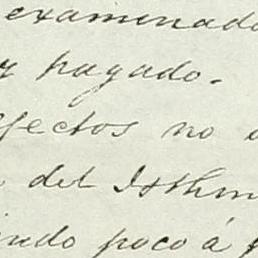 examinado
y pagado.
efectos no
del Isthm
indo poco á